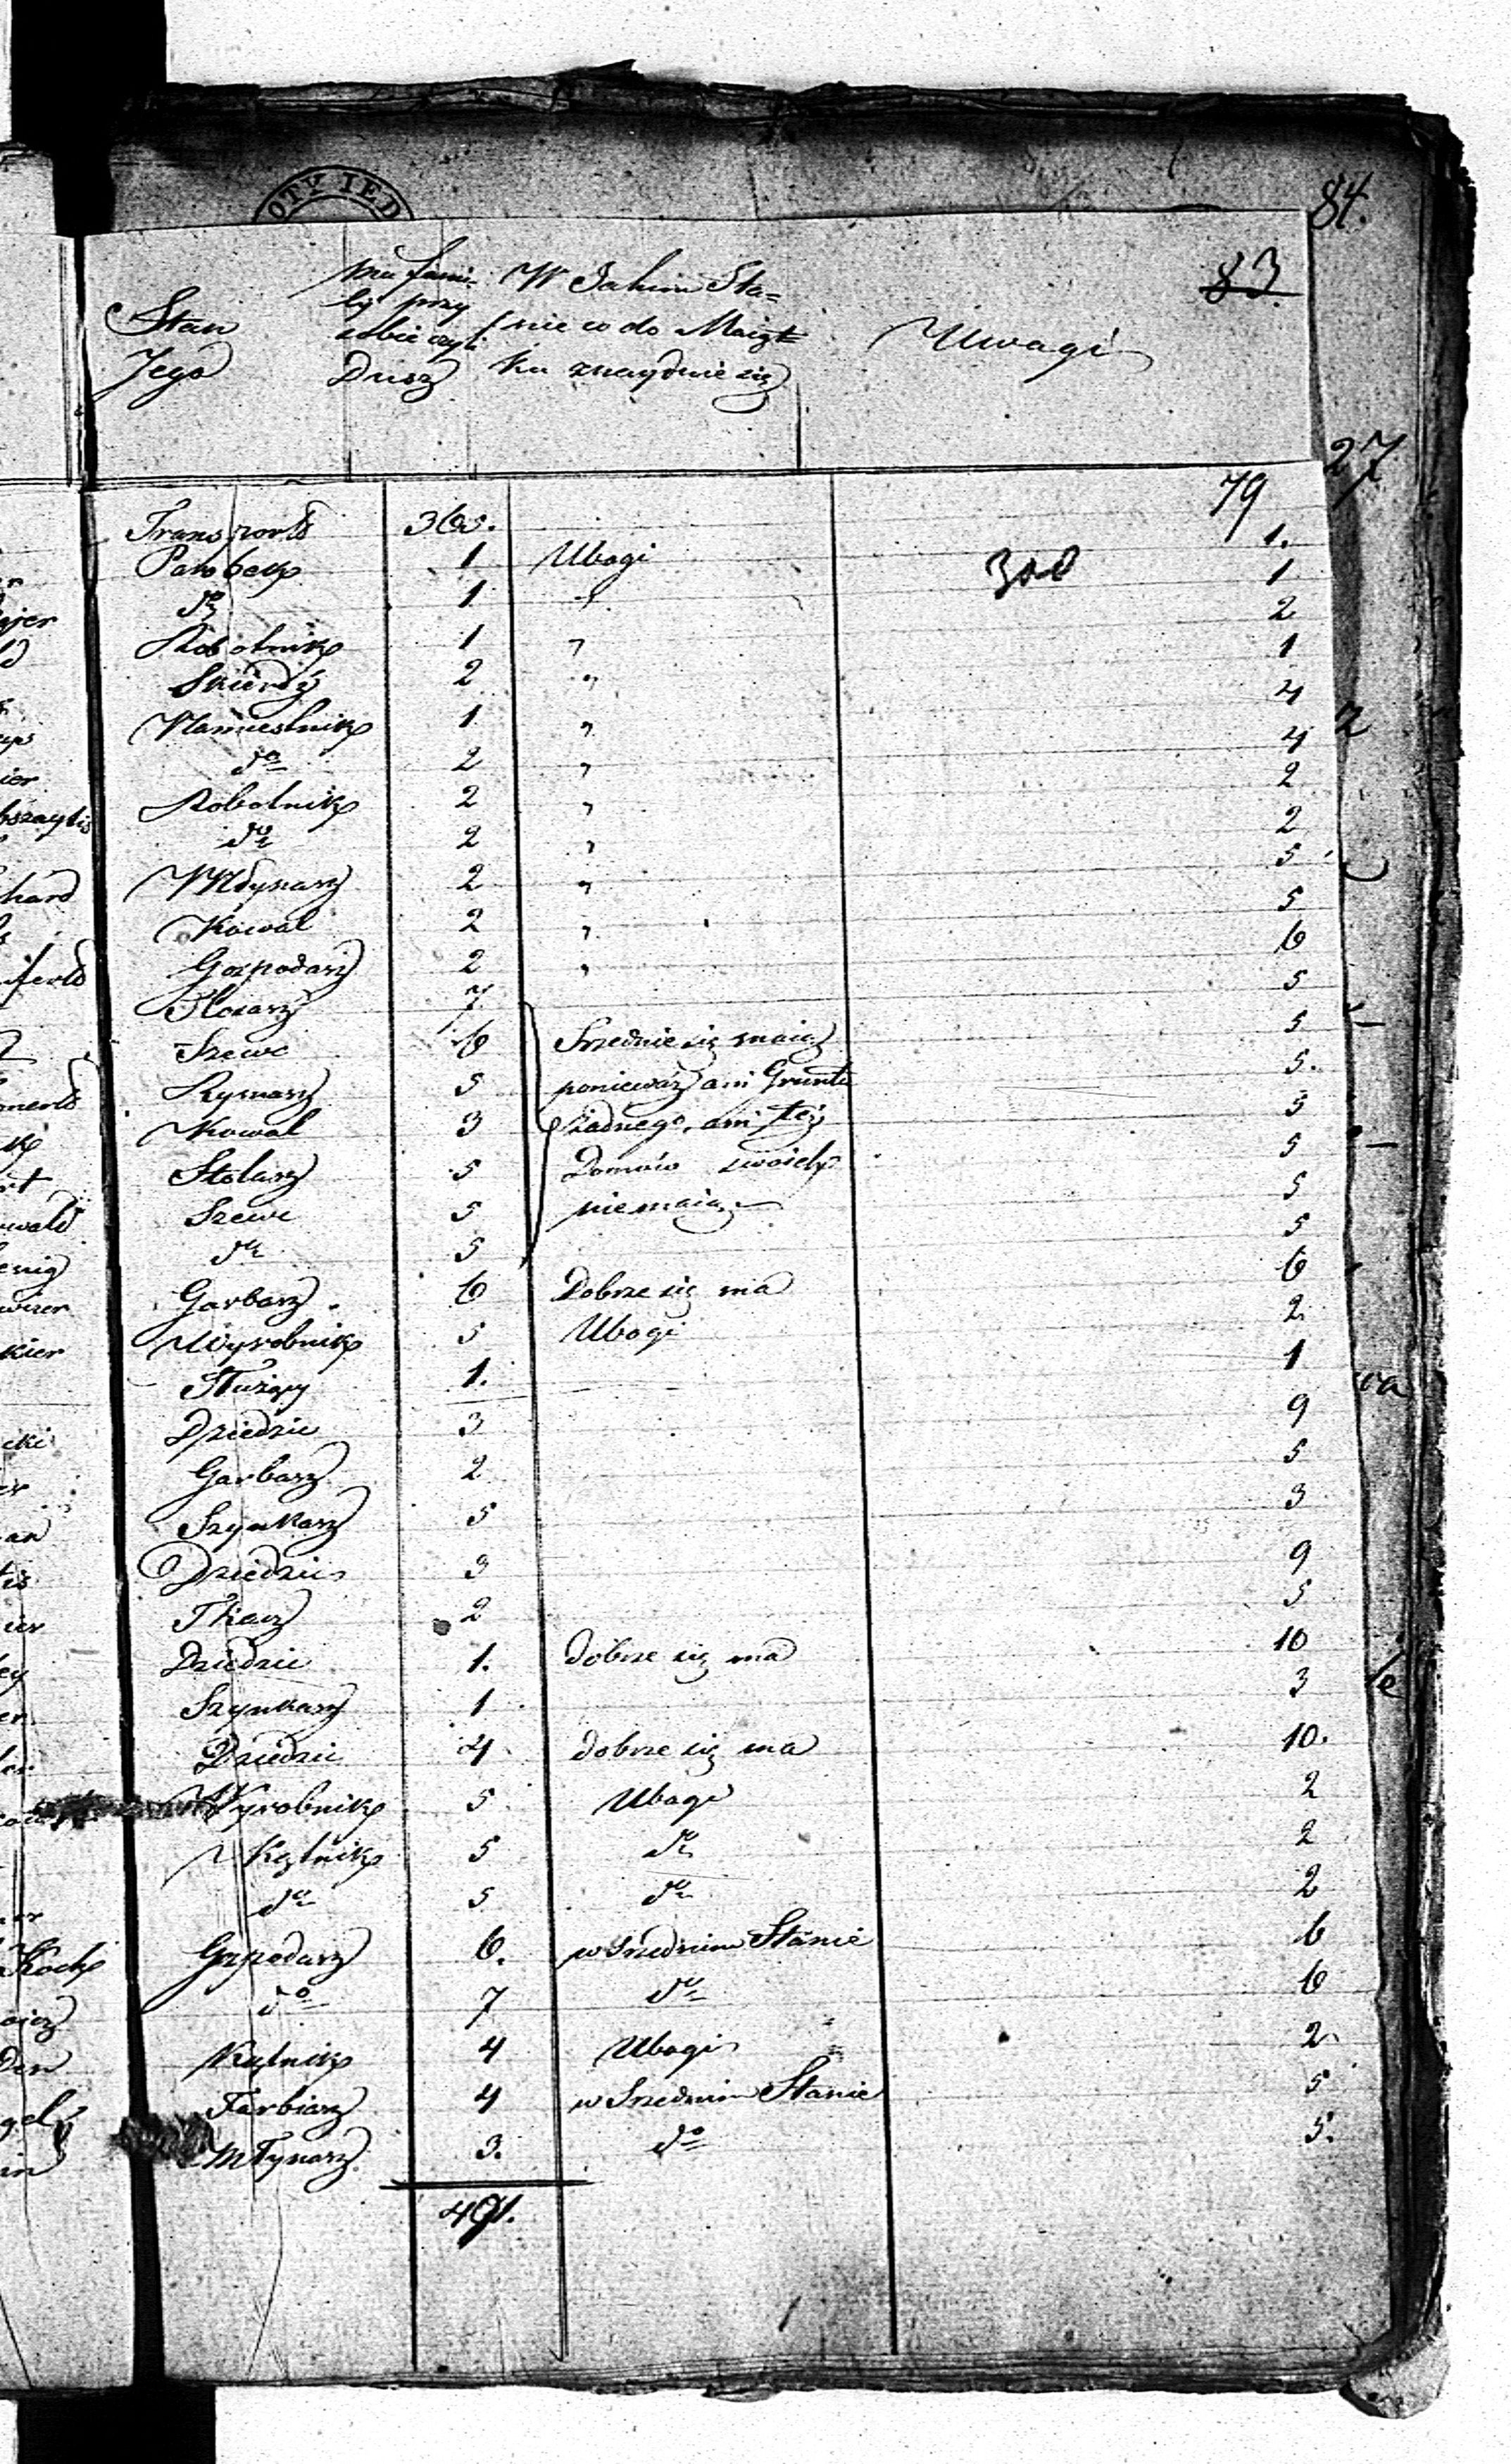 OTY IED
84.
83.
Stan Jego
ma fami-
lij przy
sobie czyli
Dusz
W Jakim Sta-
nie co do Maiąt-
ku znayduie się
Uwagi
27
79
Transport 365.
1.
Parobek 1 Ubogi 300 1
do 1 " 2
Robotnik 1 " 1
2 " 4
Namiestnik 1 " 4
do 2 " 2
Robotnik 2 " 2
do 2 " 5
Młynarz 2 " 5
Kowal 2 " 6
Gospodarz 2 " 5
7. 5
Szewc 6 Srzednie się maią 5.
Rymarz 5 ponieważ ani Gruntu 5
Kowal 3 żadnego, ani też 5
Stolarz 5 Domów swoich 5
Szewc 5 niemaią 5
do 5 6
Garbarz 6 Dobrze się ma 2
Wyrobnik 5 Ubogi 1
Służący 1. 9
Dziedzic 3 5
Garbarz 2 3
Szynkarz 5 9
Dziedzic 3 5
Tkacz 2 10
Dziedzic 1. dobrze się ma 3
Szynkarz 1 10.
Dziedzic 4 dobrze się ma 2
Wyrobnik 5 Ubogi 2
Kątnik 5 do 2
do 5 do 6
Gospodarz 6. w Srzednim Stanie 6
do 7 do 2
Kątnik 4 Ubogi 5
Farbiarz 4 w Srzednim Stanie 5.
Młynarz 3. do
491.